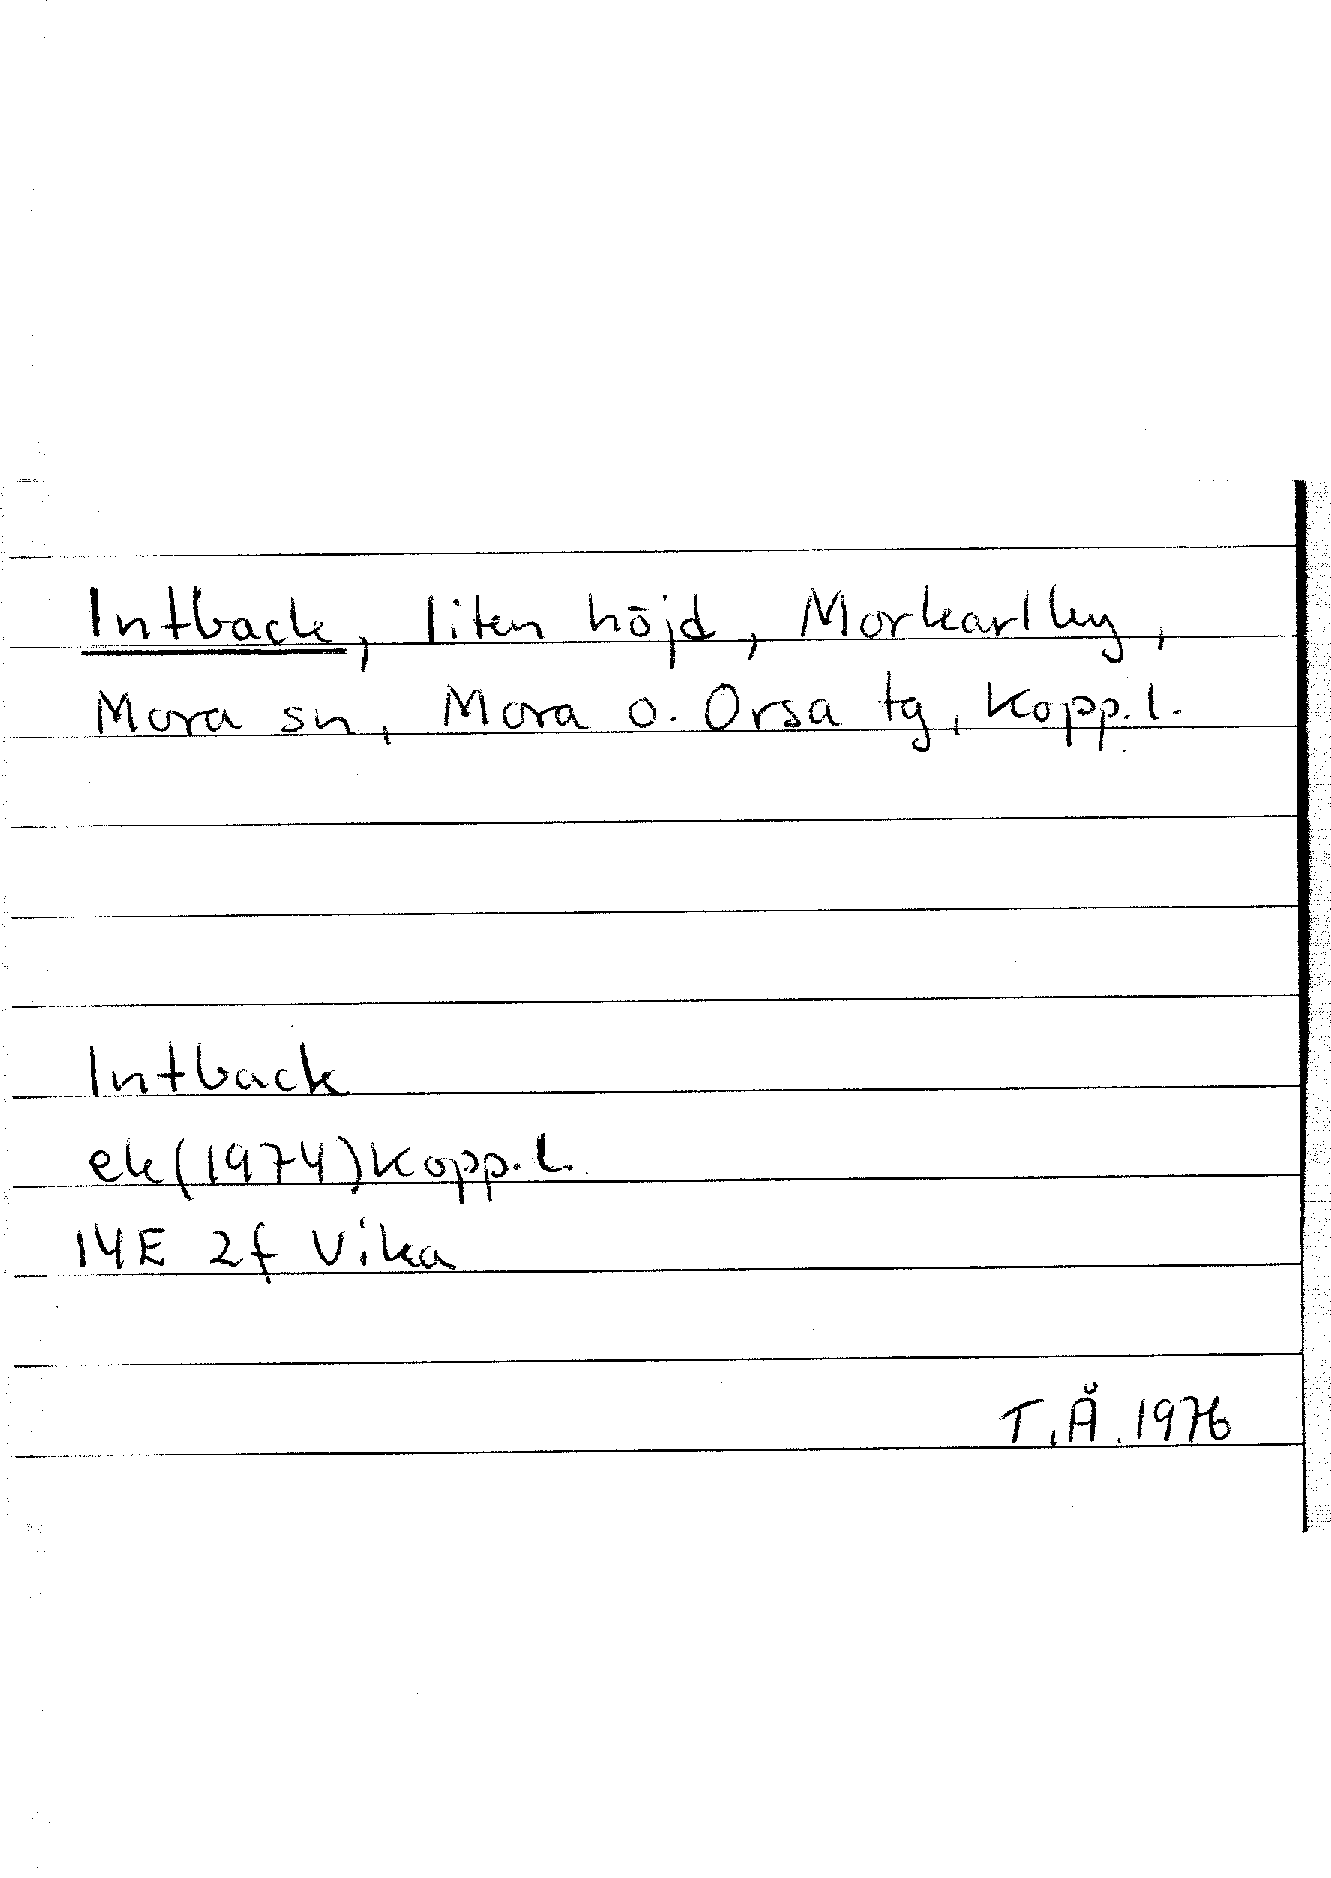 Intback, liten höjd, Morkarlby,
Mora sn, Mora o. Orsa tg, Kopp.l.
Intback
ek(1974)Kopp.l.
14E 2f Vika
T.Å.1976